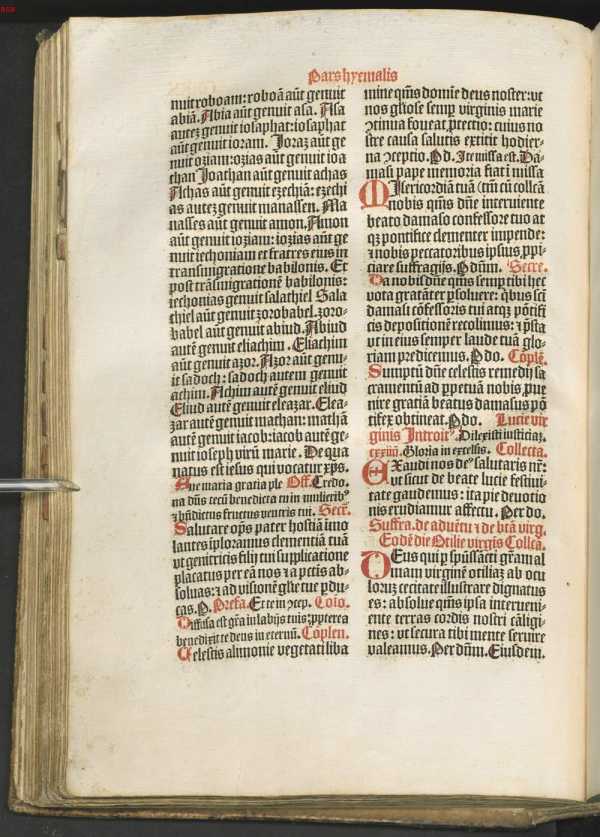 Pars hyemalis
nuit roboam: roboã aũt genuit
abiã. Abia aũt genuit asa. Asa
autez genuit iosaphat: iosaphat
aũt genuit ioram. Joraz aũt ge
nuit oziam: ozias aũt genuit ioa
than Joathan aũt genuit achas
Achas aũt genuit ezechiã: ezechi
as autez genuit manassen. Ma
nasses aũt genuit amon. Amon
aũt genuit ioziam: iozias aũt ge
nuit iechoniam et fratres eius in
transmigratione babilonis. Et
post trãsmigrationẽ babilonis:
iechonias genuit salathiel Sala
thiel aũt genuit zorobabel. zoro-
babel aũt genuit abiud. Abiud
autẽ genuit eliachim. Eliachim
aũt genuit azor. Azor aũt genu-
it sadoch: sadoch autem genuit
achim. Achim autẽ genuit eliud
Eliud autẽ genuit eleazar. Elea-
zar autẽ genuit mathan: mathã
autẽ genuit iacob: iacob autẽ ge-
nuit ioseph virũ marie. De qua
natus est iesus qui vocatur xp̃s.
Aue maria gratia ple Off. Credo.
na dñs tecũ benedicta tu in mulierib⁹
et bñdictus fructus ventris tui. Secř.
Salutare op̃s pater hostiã imo
lantes iploramus clementiã tuã
vt genitricis filij tui supplicatione
placatus per eã nos a pctis ab-
soluas: ⁊ ad visionẽ gl̃ie tue p̱du-
cas. P. Prefa. Et te in ↄcep. Cõio.
Diffusa est gr̃a in labijs tuis: ꝓpterea
benedixit te deus in eternũ. Cõplen.
Celestis alimonie vegetati liba
mine qm̃s domine deus noster: vt
nos gl̃iose semp̱ virginis marie
ↄtinua foueat ꝓtectio: cuius no
stre causa salutis extitit hodier-
na ↄceptio. P d. Ite missa est. Da-
masi pape memoria fiat ĩ missa
MIsericordiã tuã (tm̃ cũ collcã
nobis qm̃s dñe interuiente
beato damaso confessore tuo at
qꝫ pontifice clementer impende:
⁊ nobis peccatoribus ipsius ꝓpi-
ciare suffragijs. P dñm. Secre.
Da nobis dñe qm̃s semp̱ tibi hec
vota gratãter p̱soluere: q̃bus sci
damasi cõfessoris tui atqꝫ põtifi
cis depositionẽ recolimus: ⁊ p̃sta
vt in eius semper laude tuã glo-
riam predicemus. P do. Cõplẽ.
Sumptũ dñe celestis remedij sa
cramentũ ad p̱petuã nobis ꝓue
nire gratiã beatus damasus põ
tifex obtineat. P do. Lucie vir
ginis Introit⁹. Dilexisti iusticiaz.
cxxiiii. Gloria in excelsis. Collecta.
EXaudi nos de⁹ salutaris nr̃:
vt sicut de beate lucie festiui-
tate gaudemus: ita pie deuotio
nis erudiamur affectu. Per do.
Suffra. de aduẽtu ⁊ de btã virg.
Eo dẽ die Otilie virgis Collca.
DEus qui p̱ spũssãcti gr̃am al
mam virginẽ otiliaz ab ocu
loruz cecitate illustrare dignatus
es: absolue qm̃s ipsa interueni-
ente terras cordis nostri cãligi-
nes: vt secura tibi mente seruire
valeamus. Per dñm. Eiusdem.